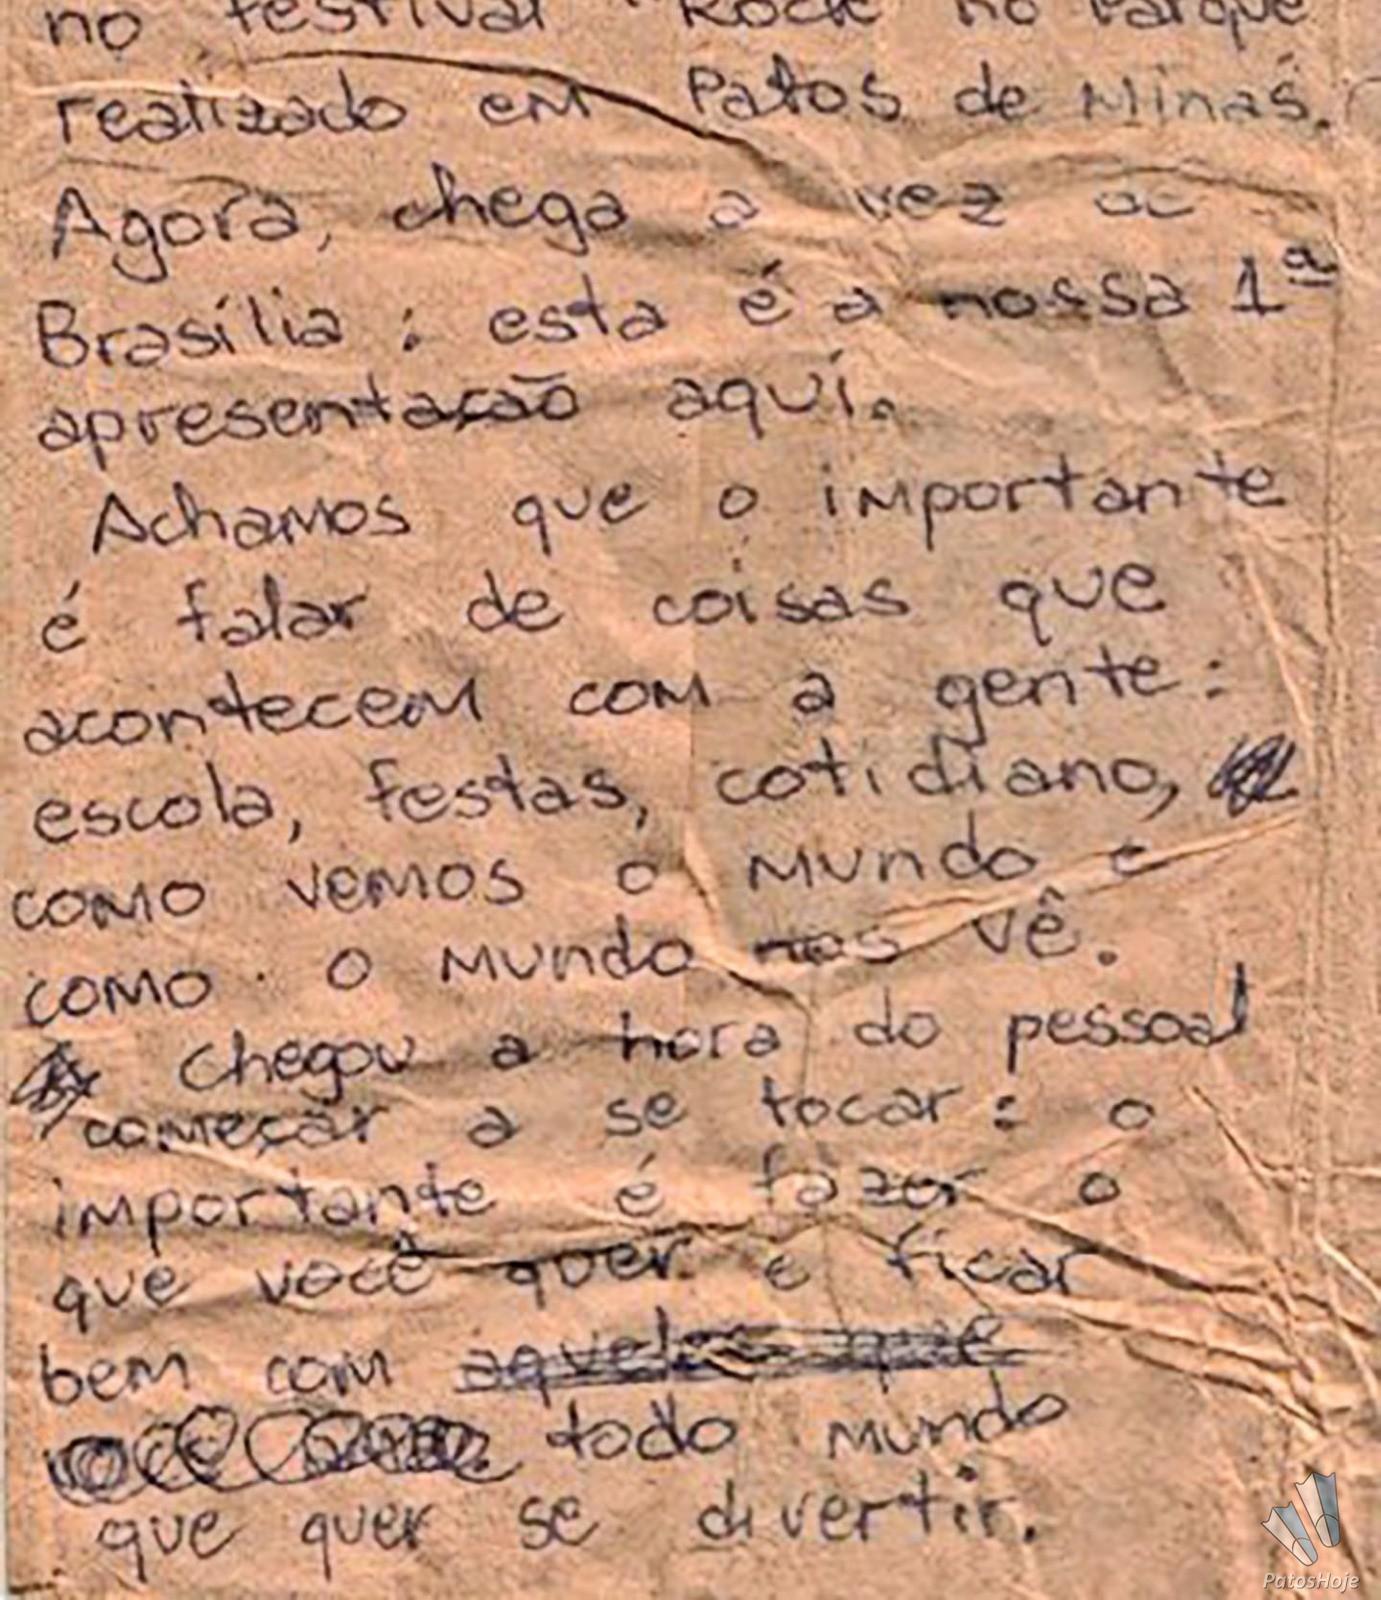 no festival "Rock no Parque
realizado em Patos de Minas.
Agora, chega a vez de
Brasília : esta é a nossa 1ª
apresentação aqui.
Achamos que o importante
é falar de coisas que
acontecem com a gente :
escola, festas, cotidiano,
como vemos o mundo e
como o mundo nos vê.
Chegou a hora do pessoal
começar a se tocar : o
importante é fazer o
que você quer e ficar
bem com aqueles que
todo mundo
que quer se divertir.
PatosHoje